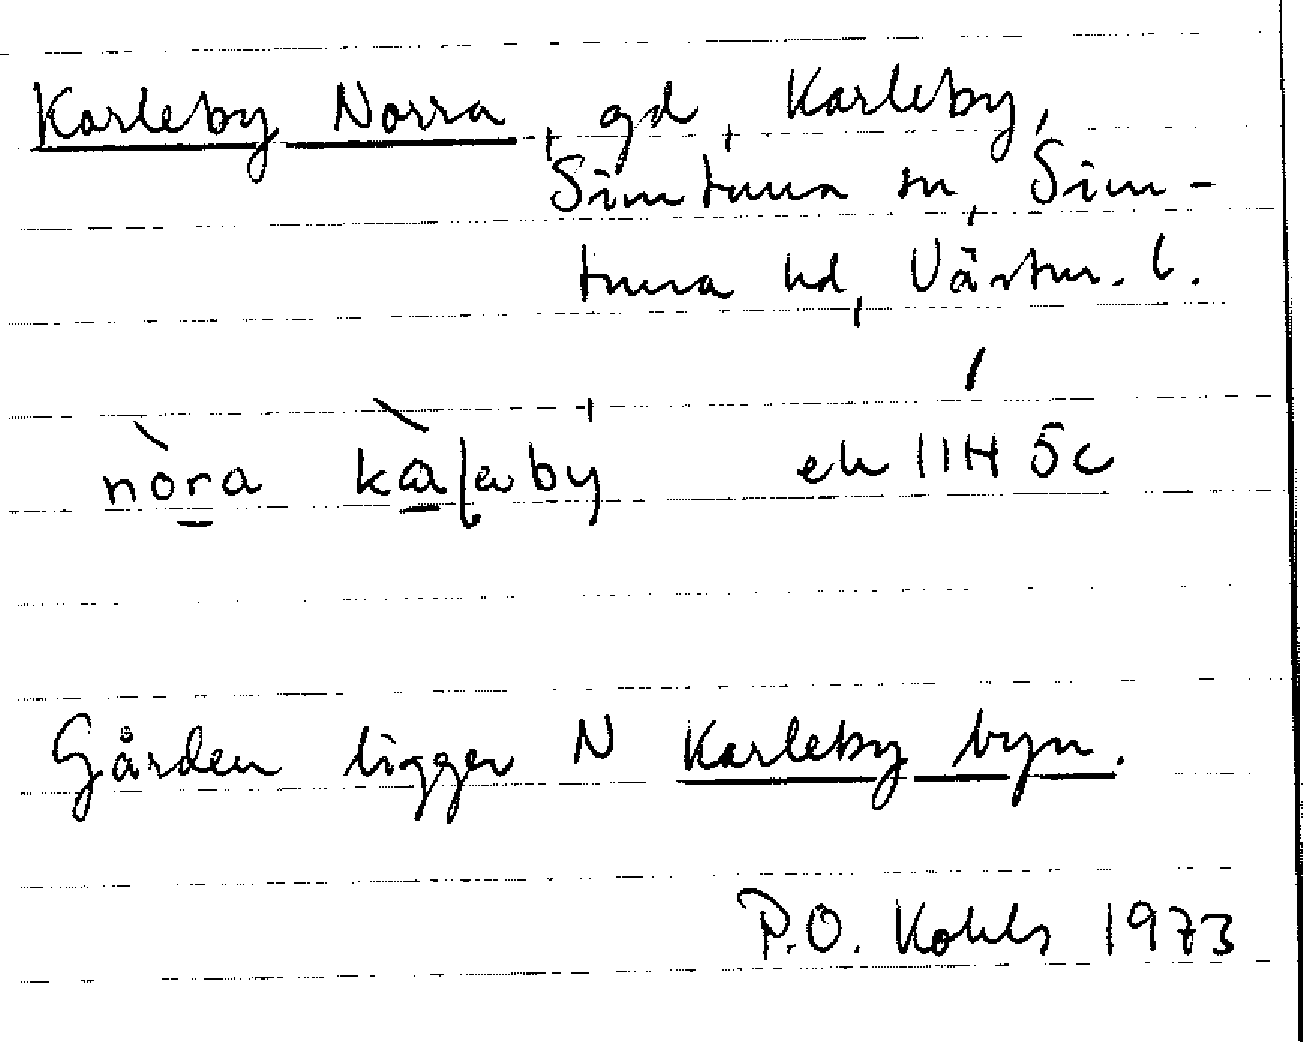 Karleby Norra, gd, Karleby,
Simtuna sn, Sim-
tuna hd, Västm. l.
nòra kàļeby ek 11H 5c
Gården ligger N Karleby byn.
P.O. Kohls 1973